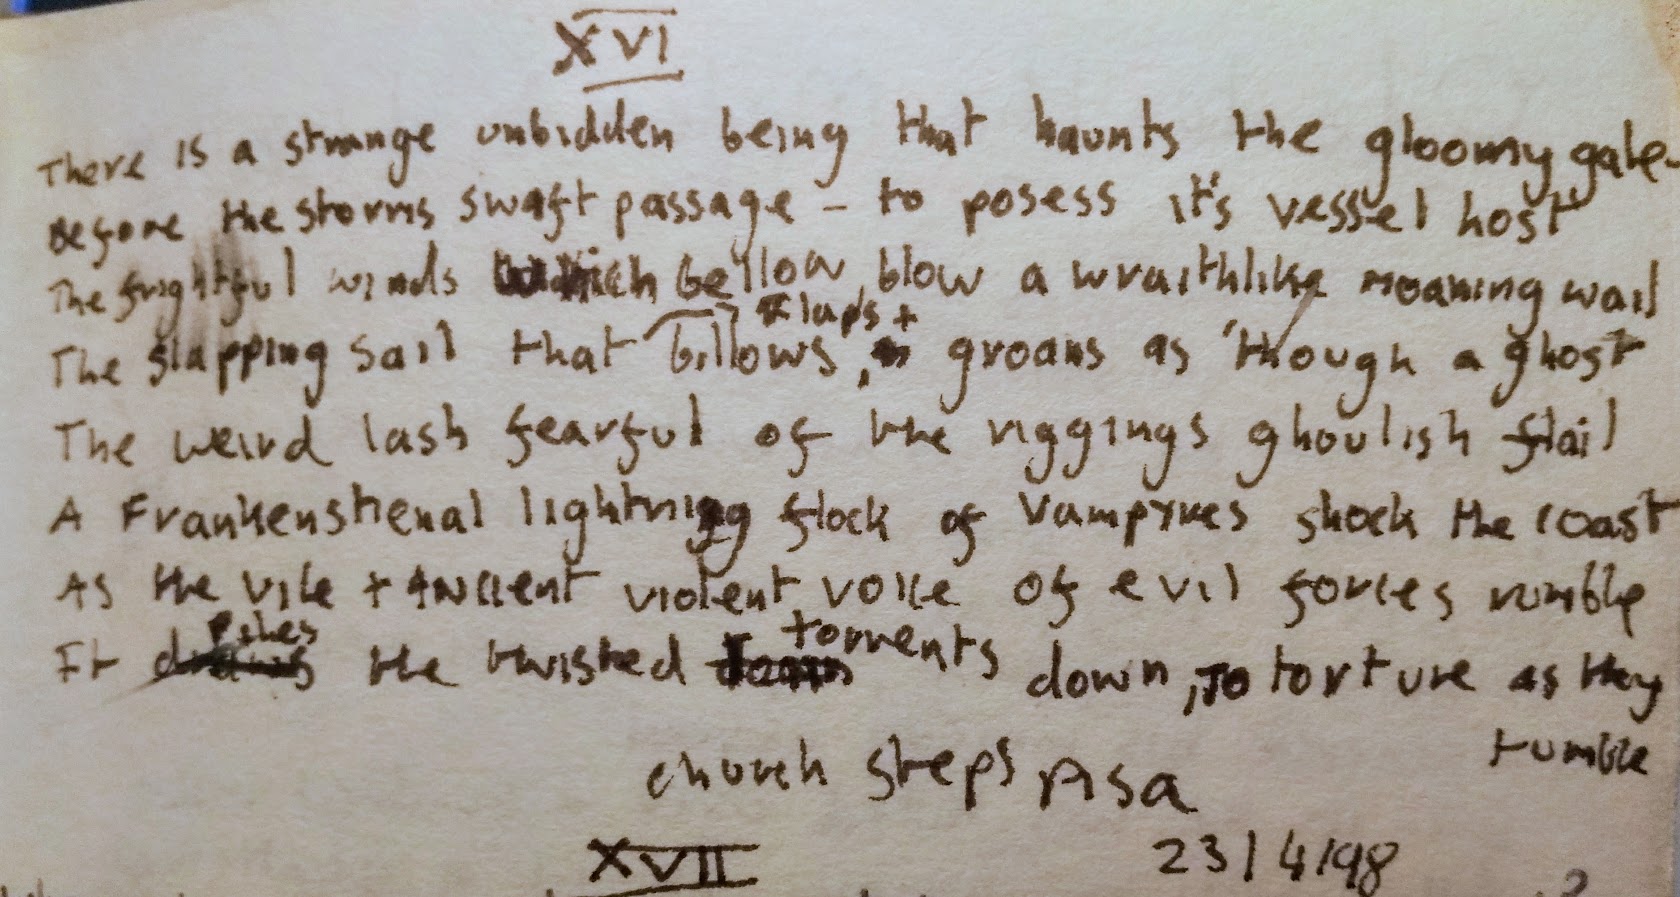 XVI
There is a strange unbidden being that haunts the gloomy gale
Before the storms swift passage - to posess it's vessel host
The frightful winds which bellow, blow a wraithlike moaning wail
flaps +
The slapping sail that billows, groans as 'though a ghost
The weird lash fearful of the riggings ghoulish flail
A Frankenstienal lightning flock of Vampyres shock the coast
As the vile + Ancient violent voice of evil forces rumble
torments
It the twisted down, To torture as they
tumble
church steps Asa
XVII 23/4/98